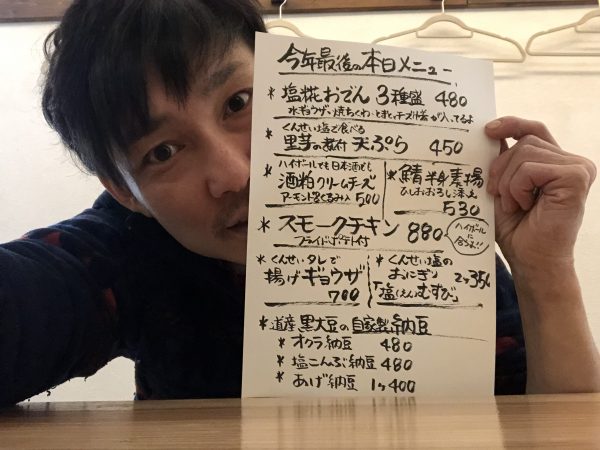 今年最後の本日メニュー
* 塩糀おでん 3種盛 480
水ギョウザ・焼ちくわ・とまととチーズ巾着が入ってるよ
くんせい塩で食べる
* 里芋の煮付 天ぷら 450
* ハイボールでも日本酒でも
酒粕クリームチーズ
アーモンド&くるみ入り 500
* 鯖半身素揚
ひしおおろし添え
530
* スモークチキン 880
フライドポテト付
ハイボールに
合うよ!!
* くんせいタレで
揚げギョウザ
700
* くんせい塩の
おにぎり 2ヶ350
「塩(えん)むすび」
* 道産黒大豆の自家製納豆
* オクラ納豆 480
* 塩こんぶ納豆 480
* あげ納豆 1ヶ400